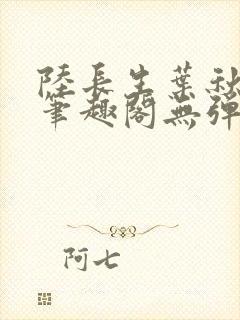 陸長生葉秋
筆趣閣無彈
阿七